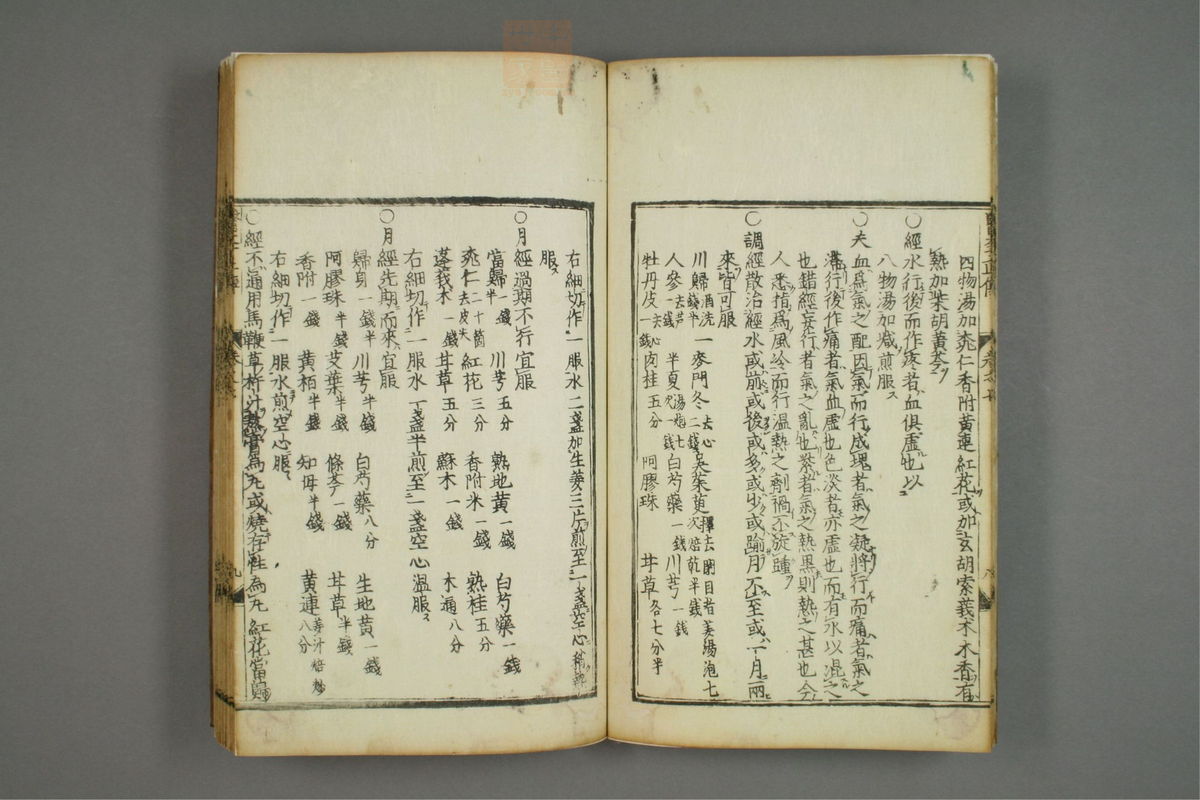 四物湯加桃仁香附黄連紅花或加玄胡索莪朮木香有
熱加柴胡黄芩
○經水行後而作疼者血俱虛也以
八物湯加减煎服
○夫血爲氣之配因氣而行成塊者氣之凝將行而痛者氣之
滯行後作痛者氣血虛也色淡者亦虛也而有水以混之
也錯經妄行者氣之亂也紫者氣之熱黒則熱之甚也今
人悉指爲風冷而行温熱之劑禍不旋踵
○調經散治經水或前或後或多或少或踰月不至或一月兩
來皆可服
川歸酒洗一錢半 麥門冬去心二錢 吳茱萸擇去閉目者姜湯泡七次焙乾半錢
人參去芦一錢 半夏湯炮七次一錢 白芍藥一錢 川芎一錢
牡丹皮去心一錢 肉桂五分 阿膠珠 甘草各七分半
右細切作一服水二盞加生姜三片煎至一盞空心稍熱
服
○月經過期不行宜服
當歸一錢半 川芎五分 熟地黄一錢 白芍藥一錢
桃仁二十箇去皮尖 紅花三分 香附米一錢 熟桂五分
蓬莪朮一錢 甘草五分 蘇木一錢 木通八分
右細切作一服水一盞半煎至一盞空心温服
○月經先期而來宜服
歸身一錢半 川芎半錢 白芍藥八分 生地黄一錢
阿膠珠半錢 艾葉半錢 條芩一錢 甘草半錢
香附一錢 黄栢半錢 知母半錢 黄連八分姜汁焙炒
右細切作一服水煎空心服
○經不通用馬鞭草杵汁熬膏爲丸或燒存性為丸紅花當歸